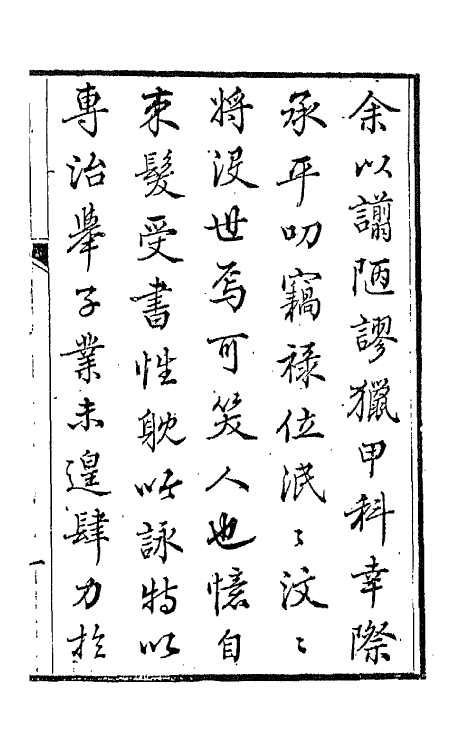 余以謭陋謬獵甲科幸際
承平叨竊祿位泯〻汶〻
將沒世焉可笑人也憶自
束髮受書性耽吟詠特以
專治舉子業未遑肆力於
一